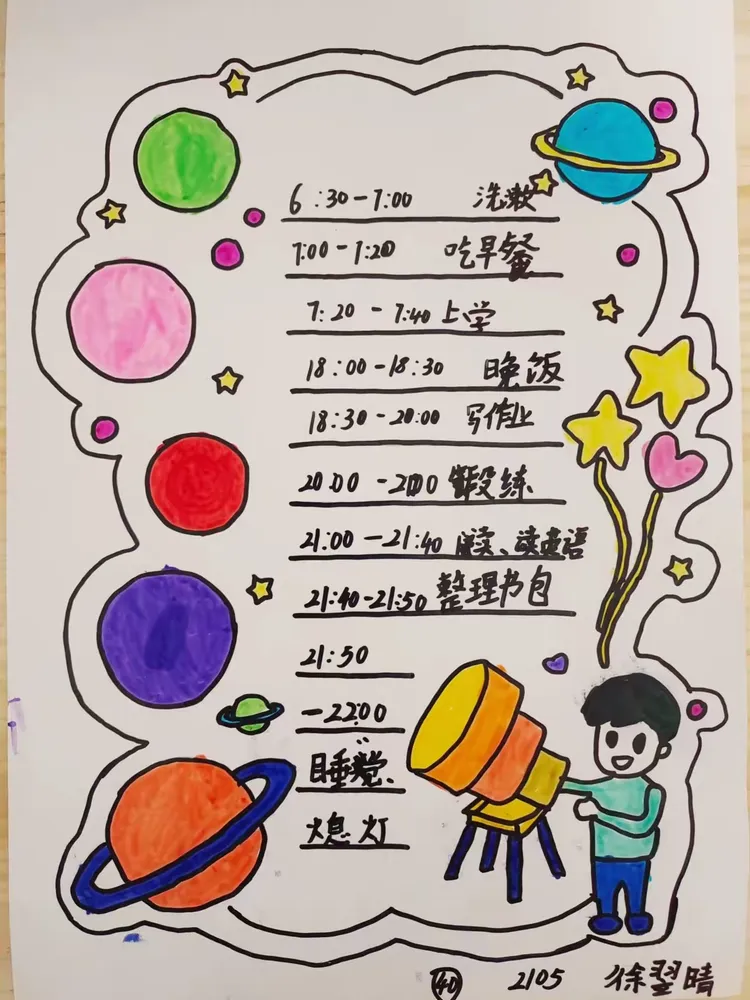 6:30-7:00 洗漱
7:00-7:20 吃早餐
7:20-7:40 上学
18:00-18:30 晚饭
18:30-20:00 写作业
20:00-21:00 锻练
21:00-21:40 阅读、读英语
21:40-21:50 整理书包
21:50
-22:00
睡觉、
熄灯
40 2105 徐翌晴